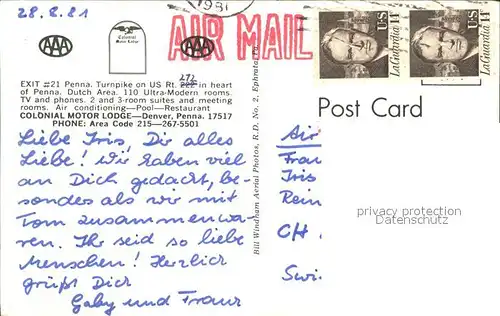 28.8.81
1981
AIR MAIL
US
La Guardia 14
US
La Guardia 14
AAA
Colonial
Motor Lodge
AAA
EXIT #21 Penna. Turnpike on US Rt. 222 in heart
272
of Penna. Dutch Area. 110 Ultra-Modern rooms.
TV and phones. 2 and 3-room suites and meeting
rooms. Air conditioning—Pool—Restaurant
COLONIAL MOTOR LODGE—Denver, Penna. 17517
PHONE: Area Code 215—267-5501
Liebe Iris, Dir alles
Liebe! Wir haben viel
an Dich gedacht, be-
sonders als wir mit
Tom zusammenwa-
ren. Ihr seid so liebe
Menschen! Herzlich
grüßt Dich
Gaby und Franz
Bill Windham Aerial Photos, R.D. No. 2, Ephrata, Pa.
Post Card
Air
Frau
Iris
Rein
privacy protection
DELCAMPE
CH.
Swi.